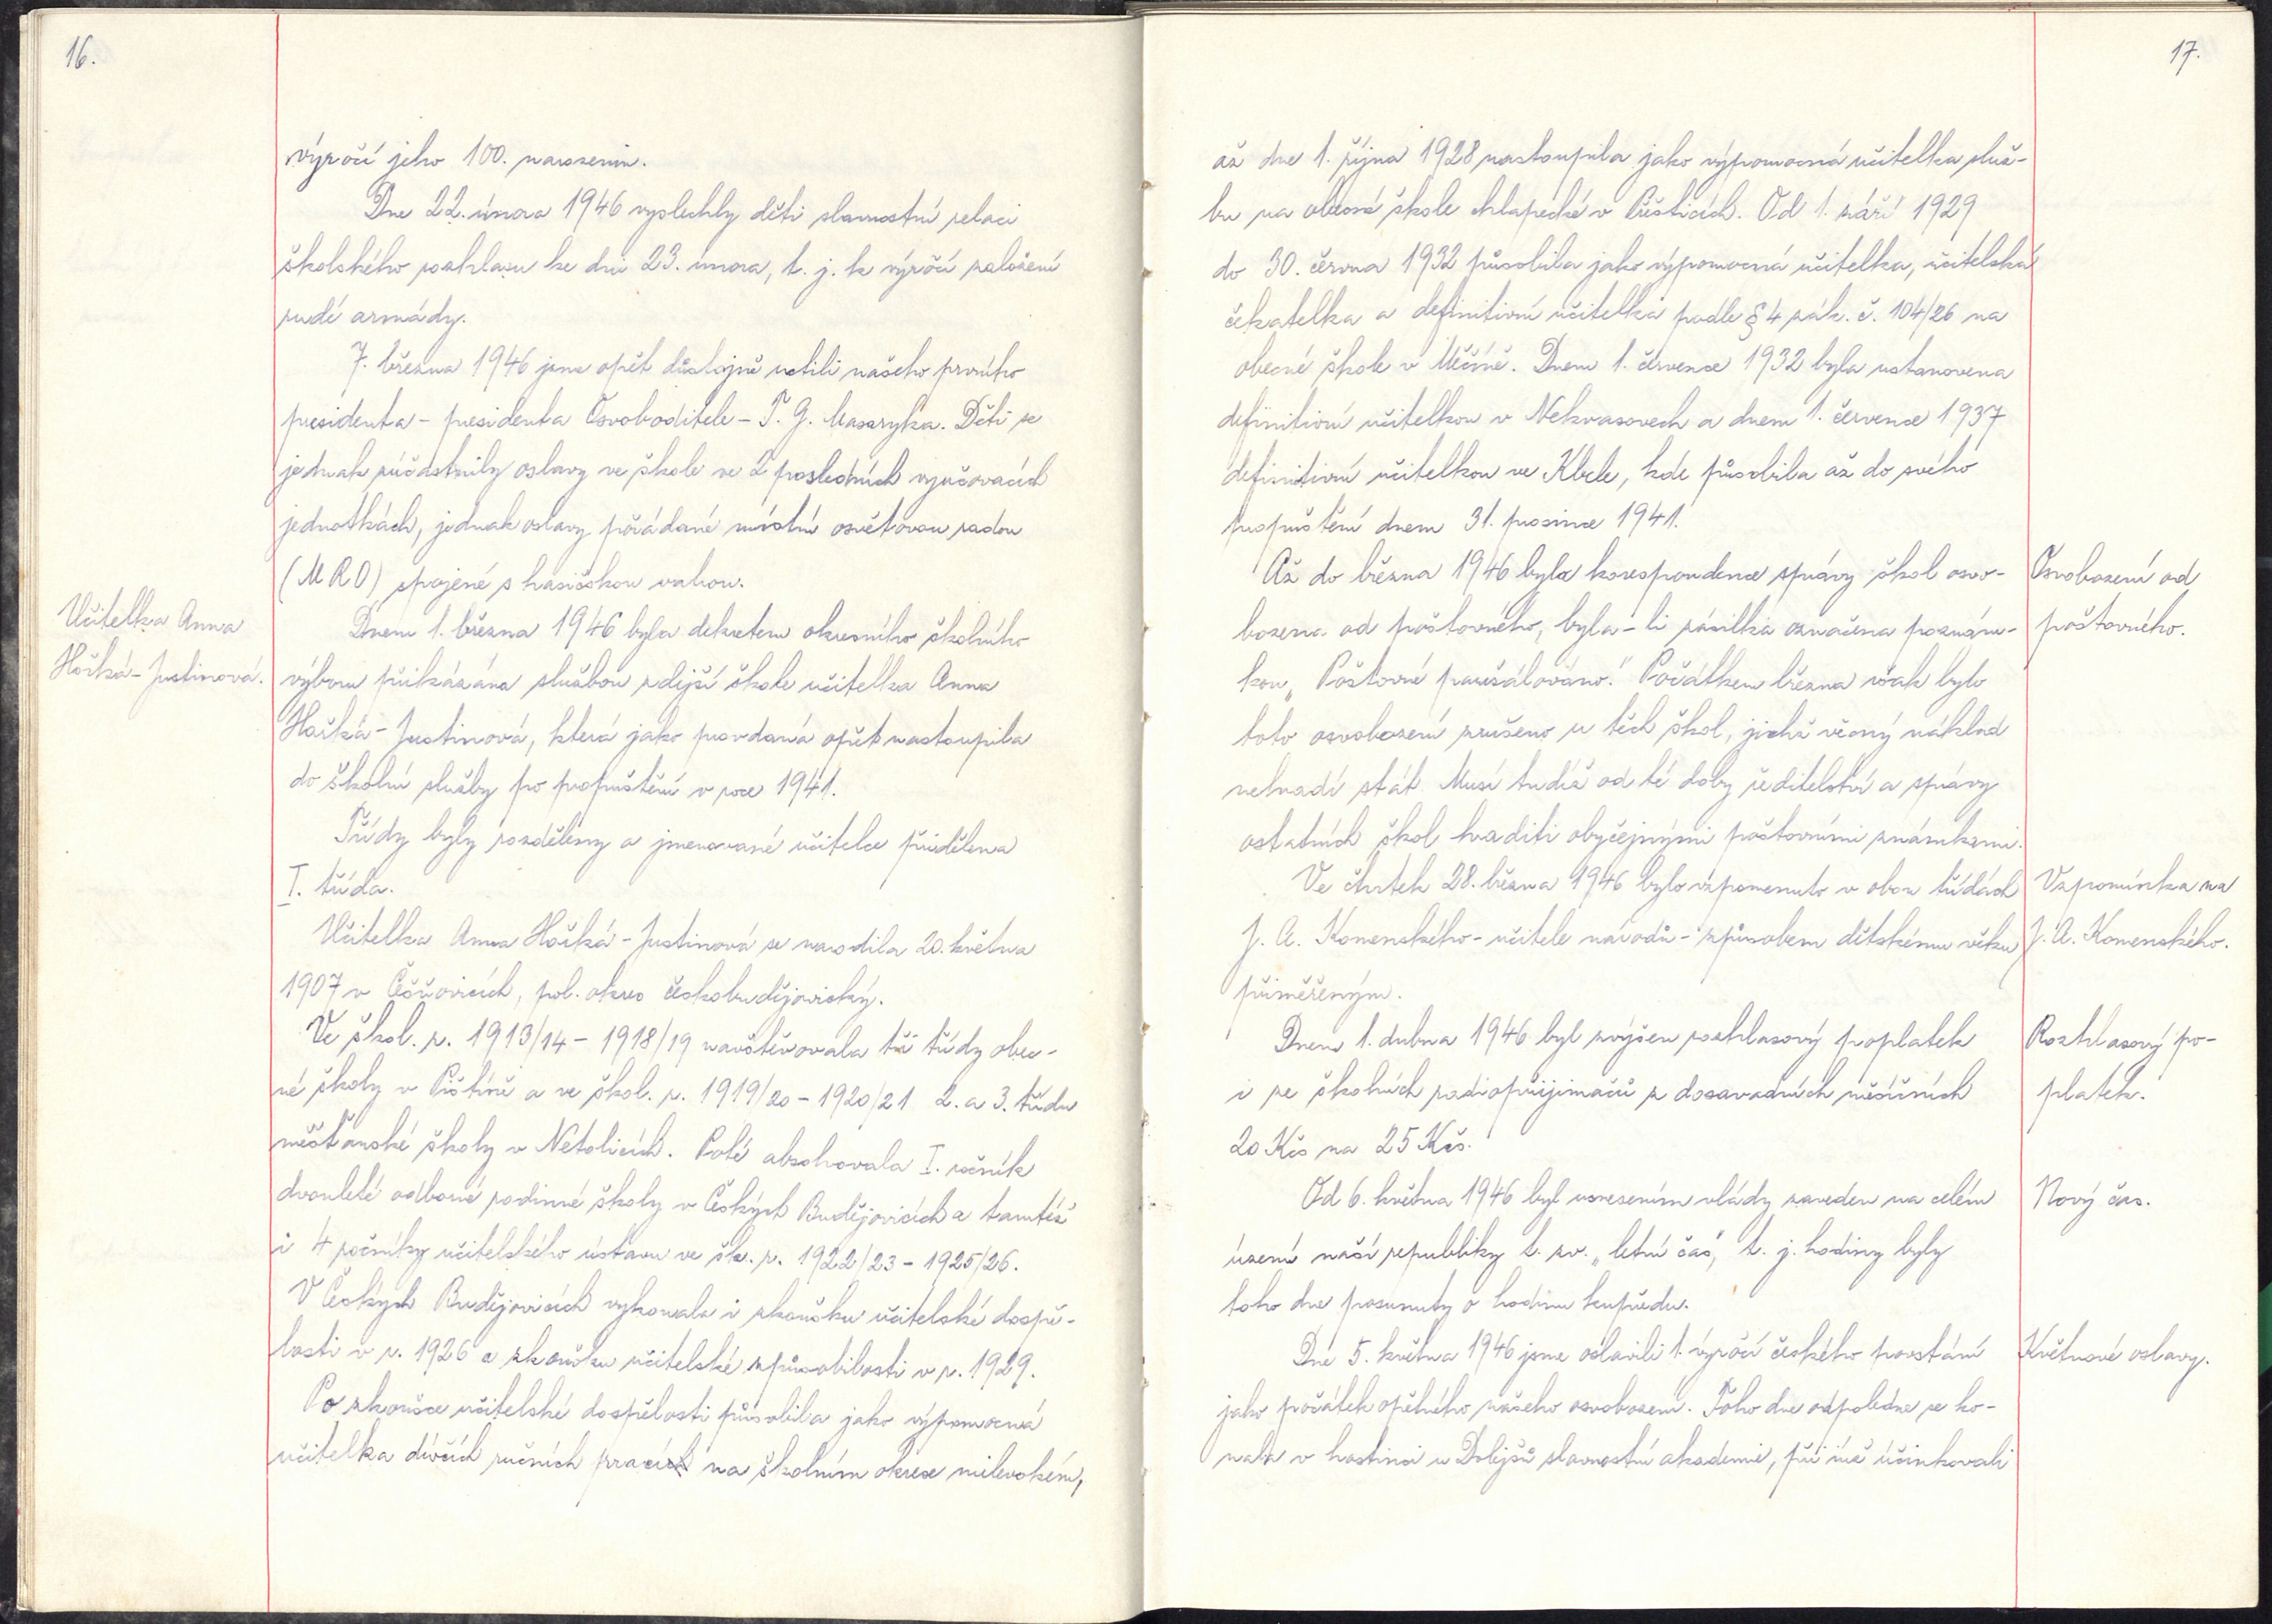 16.
výročí jeho 100. narozenin.
Dne 22. února 1946 vyslechly děti slavnostní relaci
školského rozhlasu ke dni 23. února, t. j. k výročí založení
rudé armády.
7. března 1946 jsme opět důstojně uctili našeho prvního
presidenta - presidenta Osvoboditele - T. G. Masaryka. Děti se
jednak zúčastnily oslavy ve škole ve 2 posledních vyučovacích
jednotkách, jednak oslavy pořádané místní osvětovou radou
(MRO) spojené s hasičskou valnou.
Učitelka Anna
Hořká-Justinová.
Dnem 1. března 1946 byla dekretem okresního školního
výboru přikázána službou zdejší škole učitelka Anna
Hořká-Justinová, která jako provdaná opět nastoupila
do školní služby po propuštění v roce 1941.
Třídy byly rozděleny a jmenované učitelce přidělena
I. třída.
Učitelka Anna Hořká-Justinová se narodila 20. května
1907 v Češňovicích, pol. okres českobudějovický.
Ve škol. r. 1913/14 - 1918/19 navštěvovala tři třídy obec-
né školy v Pištíně a ve škol. r. 1919/20 - 1920/21 2. a 3. třídu
měšťanské školy v Netolicích. Poté absolvovala I. ročník
dvouleté odborné rodinné školy v Českých Budějovicích a tamtéž
i 4 ročníky učitelského ústavu ve šk. r. 1922/23 - 1925/26.
V Českých Budějovicích vykonala i zkoušku učitelské dospě-
losti v r. 1926 a zkoušku učitelské způsobilosti v r. 1929.
Po zkoušce učitelské dospělosti působila jako výpomocná
učitelka dívčích ručních prací na školním okrese milevském,
17.
až dne 1. října 1928 nastoupila jako výpomocná učitelka služ-
bu na obecné škole chlapecké v Přešticích. Od 1. září 1929
do 30. června 1932 působila jako výpomocná učitelka, učitelská
čekatelka a definitivní učitelka podle § 4 zák. č. 104/26 na
obecné škole v Měčíně. Dnem 1. července 1932 byla ustanovena
definitivní učitelkou v Nekvasovech a dnem 1. července 1937
definitivní učitelkou ve Kbele, kde působila až do svého
propuštění dnem 31. prosince 1941.
Osvobození od
poštovného.
Až do března 1946 byla korespondence správy škol osvo-
bozena od poštovného, byla-li zásilka označena poznám-
kou „Poštovné paušalováno". Počátkem března však bylo
toto osvobození zrušeno u těch škol, jichž věcný náklad
nehradí stát. Musí tudíž od té doby ředitelství a správy
ostatních škol hraditi obyčejnými poštovními známkami.
Vzpomínka na
J. A. Komenského.
Ve čtvrtek 28. března 1946 bylo vzpomenuto v obou třídách
J. A. Komenského - učitele národů - způsobem dětskému věku
přiměřeným.
Rozhlasový po-
platek.
Dnem 1. dubna 1946 byl zvýšen rozhlasový poplatek
i ze školních radiopřijimačů z dosavadních měsíčních
20 Kčs na 25 Kčs.
Nový čas.
Od 6. května 1946 byl usnesením vlády zaveden na celém
území naší republiky t. zv. „letní čas", t. j. hodiny byly
toho dne posunuty o hodinu kupředu.
Květnové oslavy.
Dne 5. května 1946 jsme oslavili 1. výročí českého povstání
jako počátek opětného našeho osvobození. Toho dne odpoledne se ko-
nala v hostinci u Dolejšů slavnostní akademie, při níž účinkovali